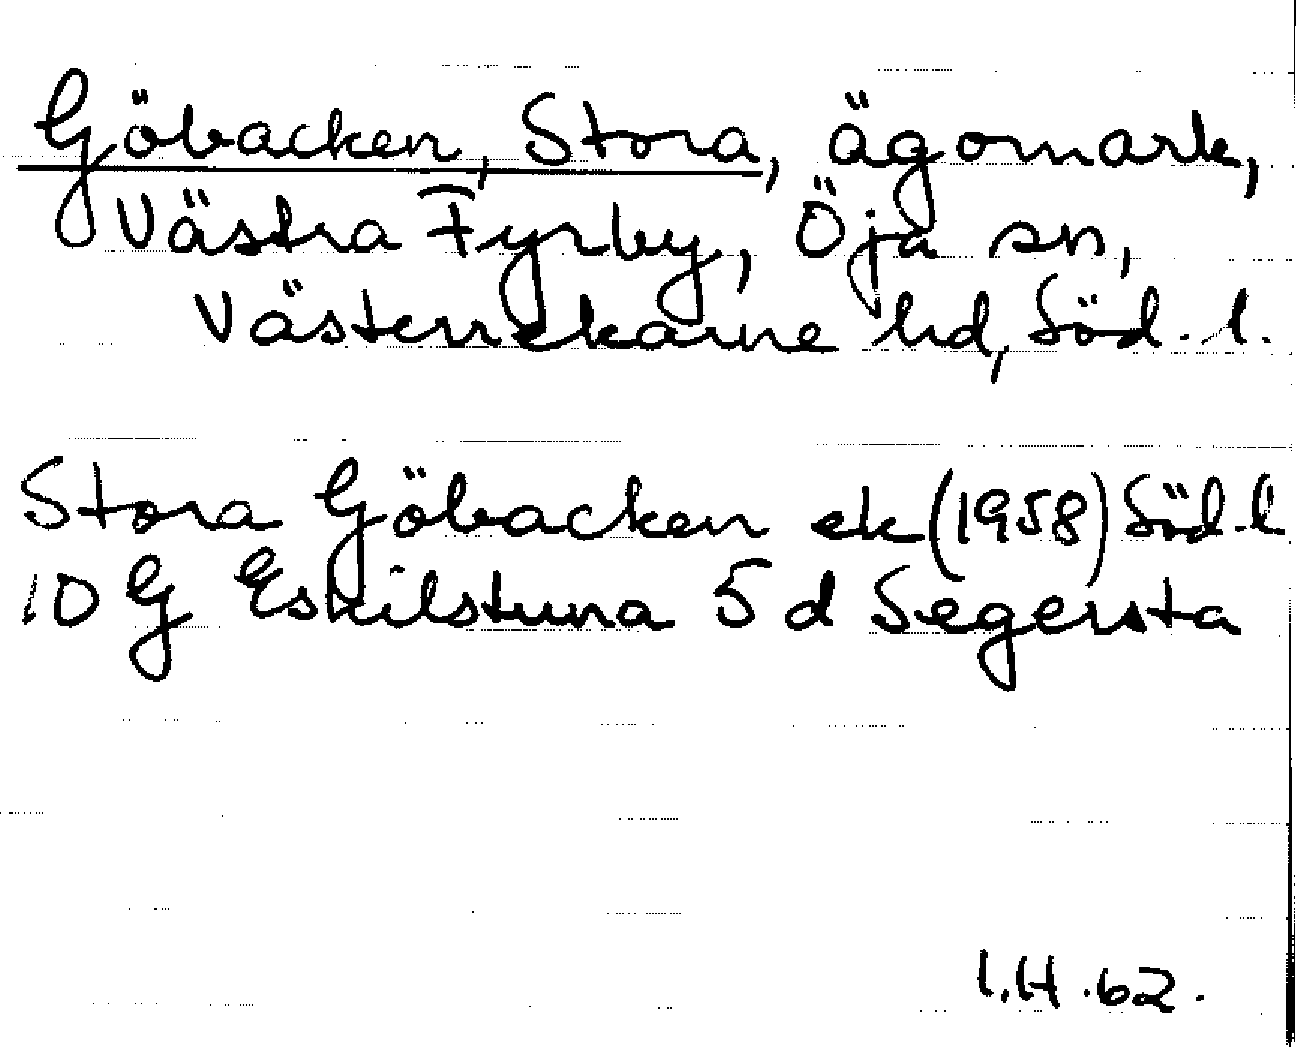 Göbacken, Stora, ägomark,
Västra Fyrby, Öja sn,
Västerrekarne hd, Söd. l.
Stora Göbacken ek (1958) Söd. l
10 G Eskilstuna 5 d Segersta
I.H.62.